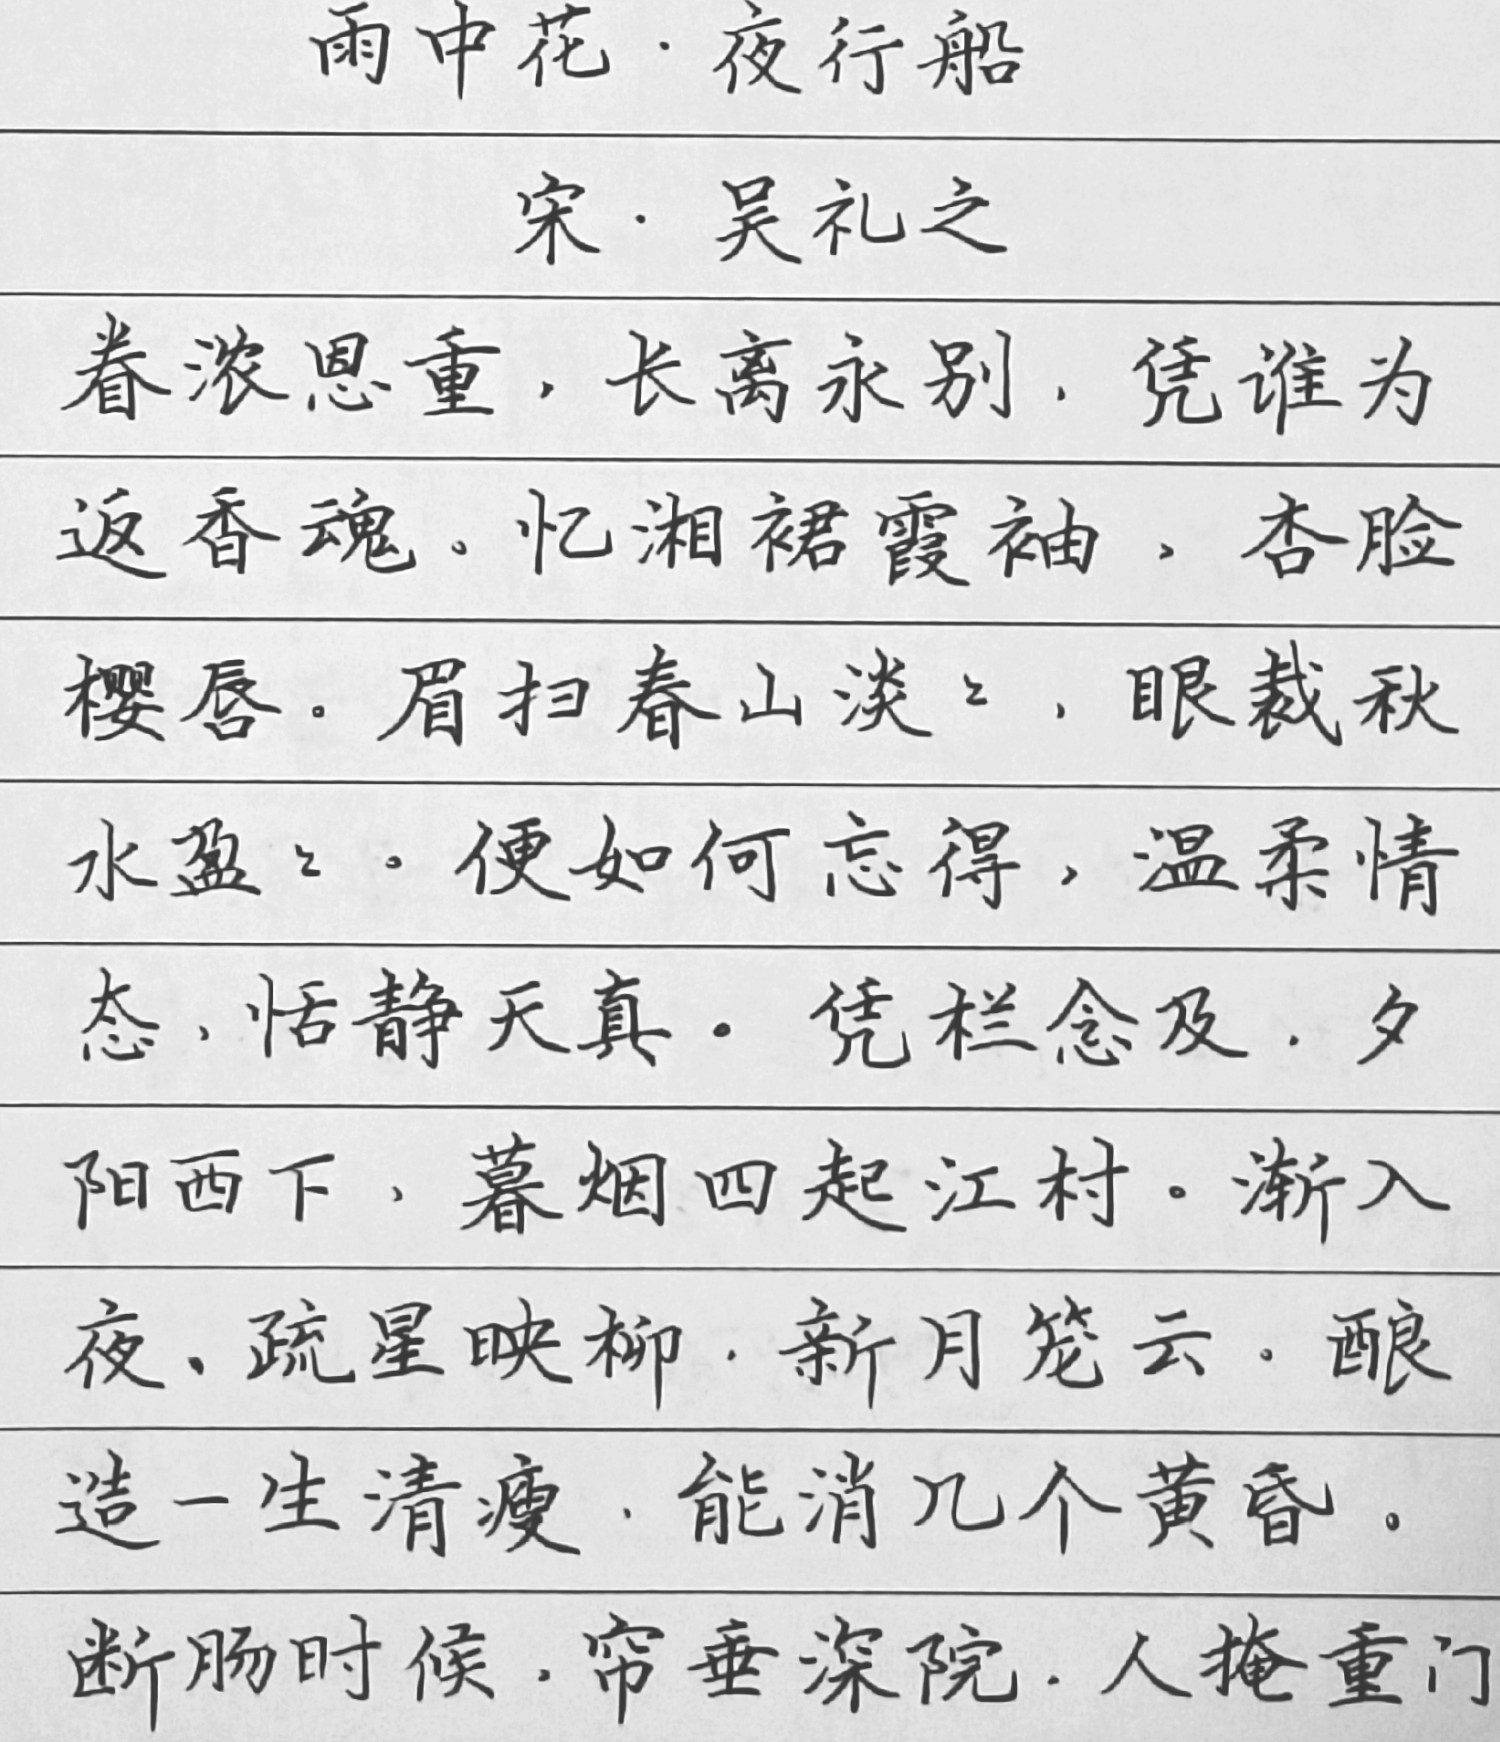 雨中花·夜行船
宋·吴礼之
眷浓恩重，长离永别，凭谁为
返香魂。忆湘裙霞袖，杏脸
樱唇。眉扫春山淡々，眼裁秋
水盈々。便如何忘得，温柔情
态，恬静天真。凭栏念及，夕
阳西下，暮烟四起江村。渐入
夜、疏星映柳，新月笼云。酿
造一生清瘦，能消几个黄昏。
断肠时候，帘垂深院，人掩重门